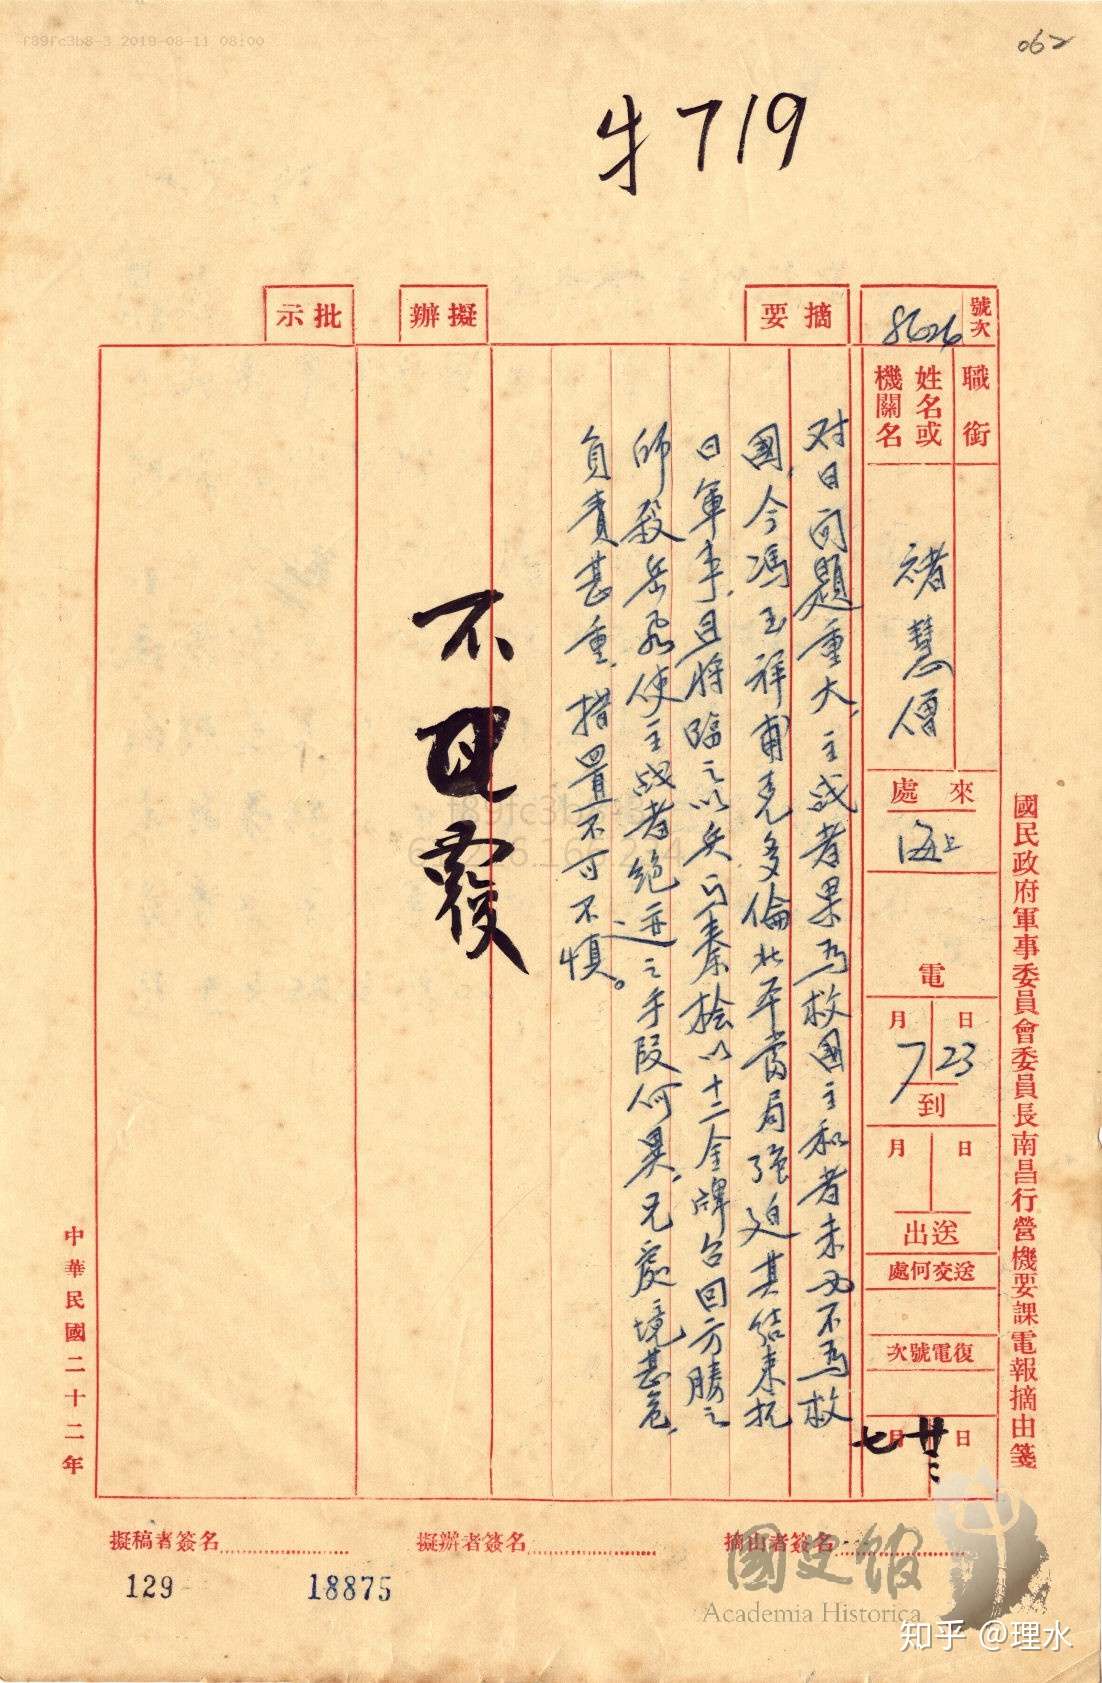 f89fc3b8-3 2019-08-11 08:00
062
才719
國民政府軍事委員會委員長南昌行營機要課電報摘由箋
號次
8626
職銜
姓名或機關名
褚慧僧
來處
海上
電
7月23日
到
月日
送出
送交何處
復電號次
七月廿三日
摘要
对日问題重大，主战者果为救国主和者未必不为救
國，今馮玉祥甫克多倫北平當局强迫其結束抗
日軍事，且将臨之以兵与秦桧以十二金牌召回方勝之
师殺岳飛使主战者绝迹之手段何異，兄處境甚危，
負責甚重，措置不可不慎。
擬辦
不回覆
批示
中華民國二十二年
摘由者簽名
擬辦者簽名
擬稿者簽名
129
18875
國史館
Academia Historica
知乎 @理水